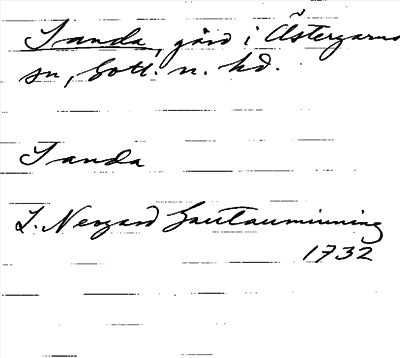 Sanda, gård i Östergarns
sn, Gotl. n. hd.
Sanda
L. Neogard Gautauminning
1732